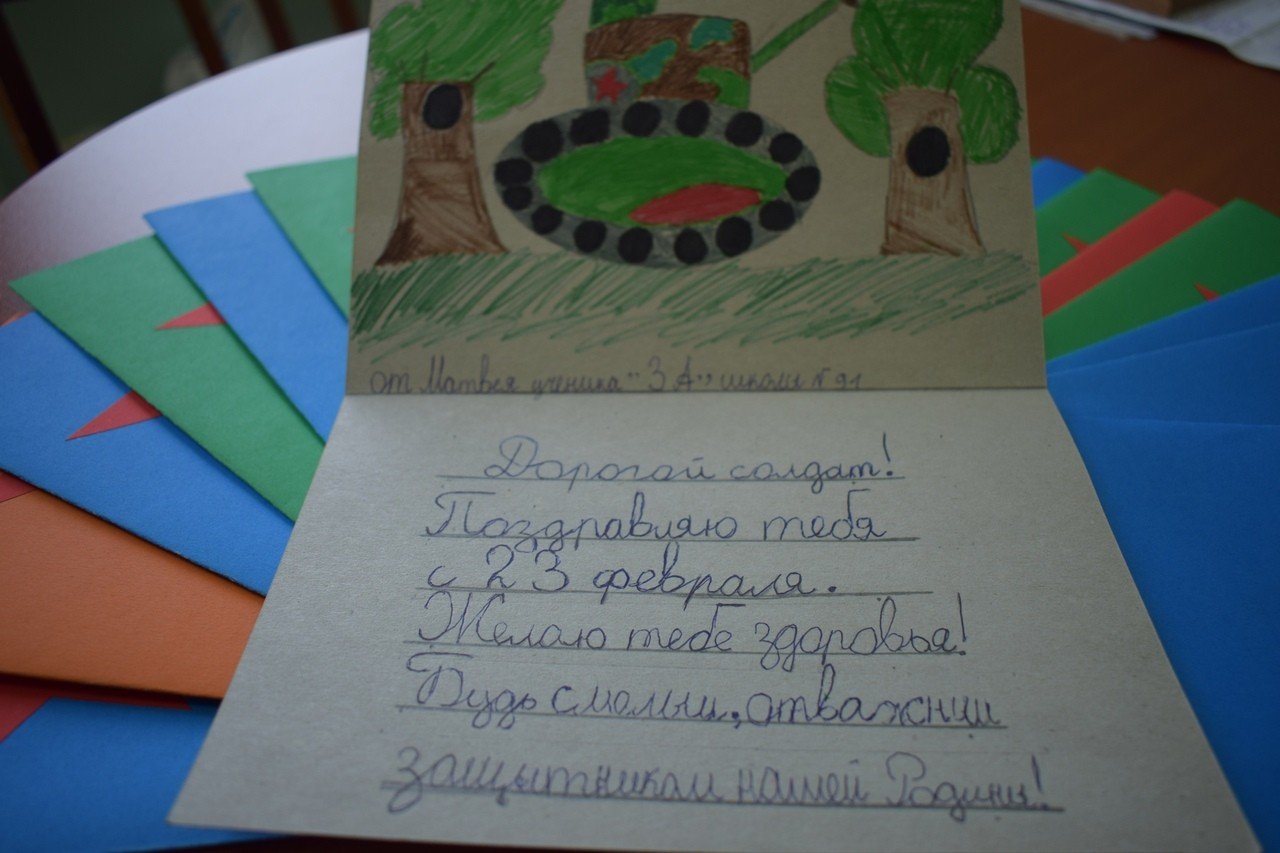 от Матвея ученика "3 А" школы №91
Дорогой солдат!
Поздравляю тебя
с 23 февраля.
Желаю тебе здоровья!
Будь смелым, отважним
защытником нашей Родины!